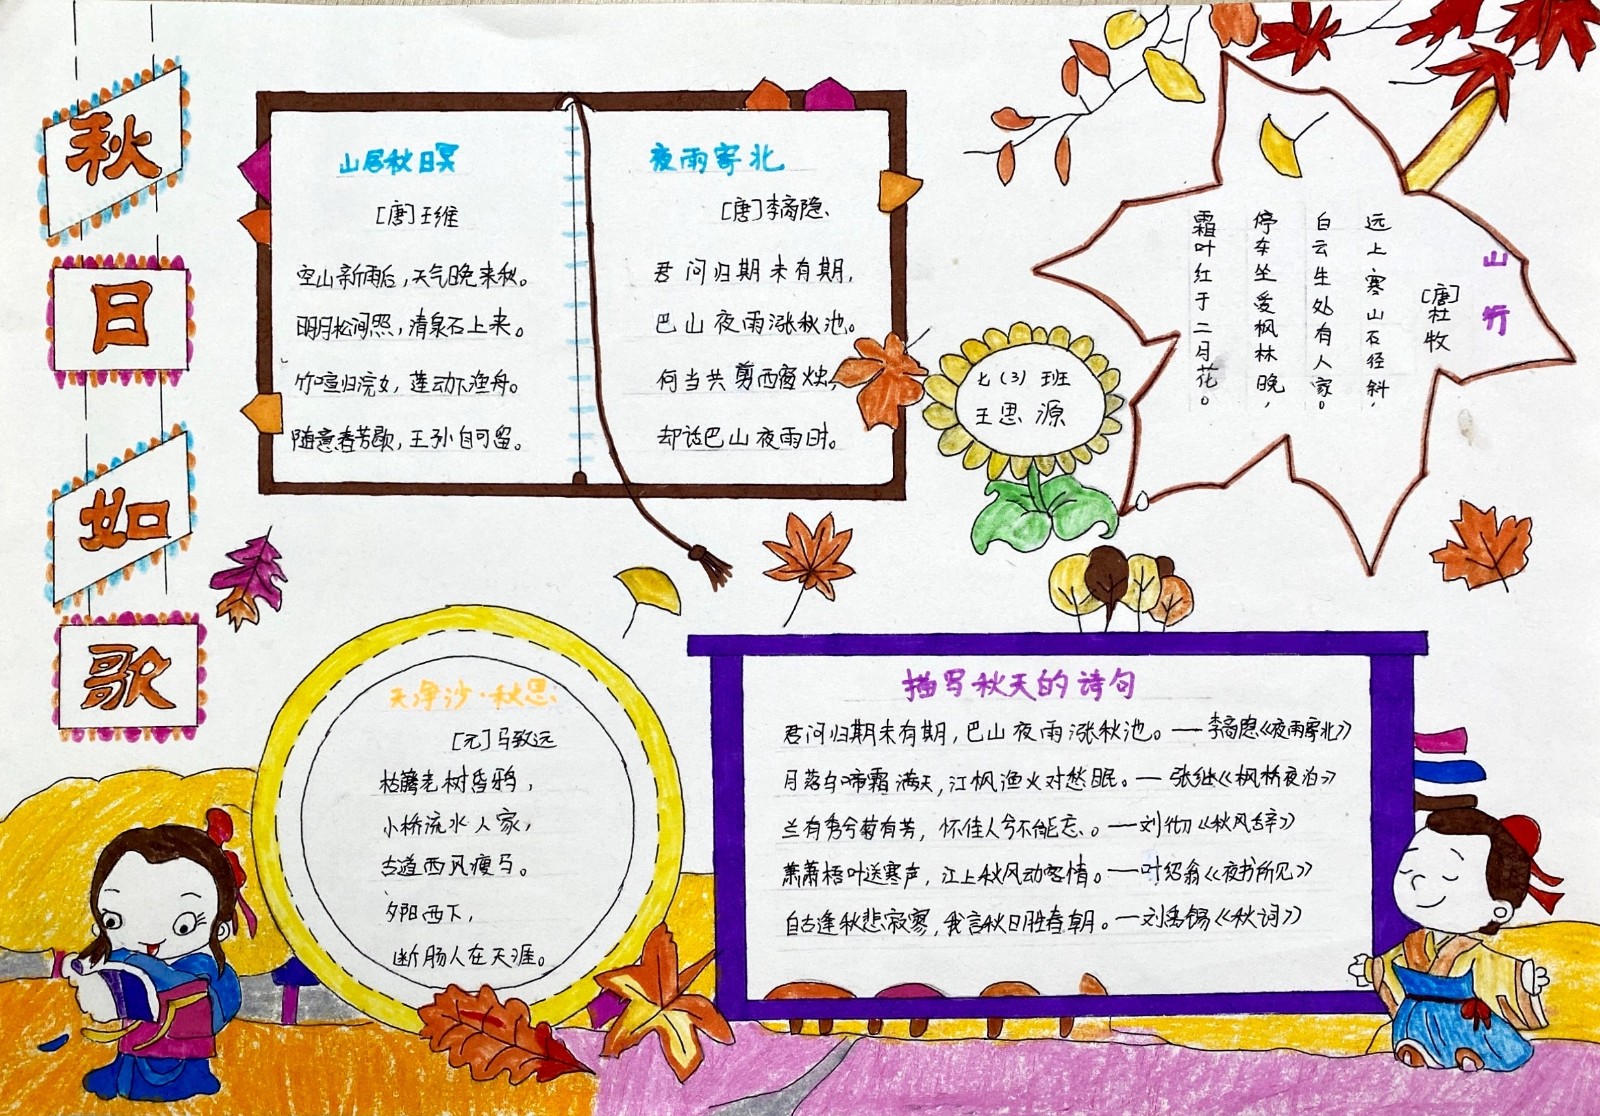 秋日如歌
山居秋日暝
[唐]王维
空山新雨后,天气晚来秋。
明月松间照,清泉石上来。
竹喧归浣女,莲动下渔舟。
随意春芳歇,王孙自可留。
夜雨寄北
[唐]李商隐
君问归期未有期,
巴山夜雨涨秋池。
何当共剪西窗烛,
却话巴山夜雨时。
山行
[唐]杜牧
远上寒山石径斜,
白云生处有人家。
停车坐爱枫林晚,
霜叶红于二月花。
七(3)班
王思源
天净沙·秋思
[元]马致远
枯藤老树昏鸦,
小桥流水人家,
古道西风瘦马。
夕阳西下,
断肠人在天涯。
描写秋天的诗句
君问归期未有期,巴山夜雨涨秋池。——李商隐《夜雨寄北》
月落乌啼霜满天,江枫渔火对愁眠。——张继《枫桥夜泊》
兰有秀兮菊有芳,怀佳人兮不能忘。——刘彻《秋风辞》
萧萧梧叶送寒声,江上秋风动客情。——叶绍翁《夜书所见》
自古逢秋悲寂寥,我言秋日胜春朝。——刘禹锡《秋词》